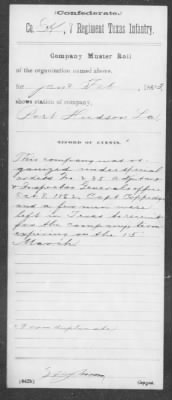 (Confederate.)
Co. , 7 Regiment Texas Infantry.
Company Muster Roll
of the organization named above,
for Jan & Feb , 1863,
shows station of company,
Port Hudson La
RECORD OF EVENTS.
This company was or-
ganized under special
orders No 238 Adjutant
& Inspector General's office
Oct 8 1862 Capt
and a few men were
left in Texas to recruit
for the company
expiring on the 15
March
From duplicate
(642b) Copyist.